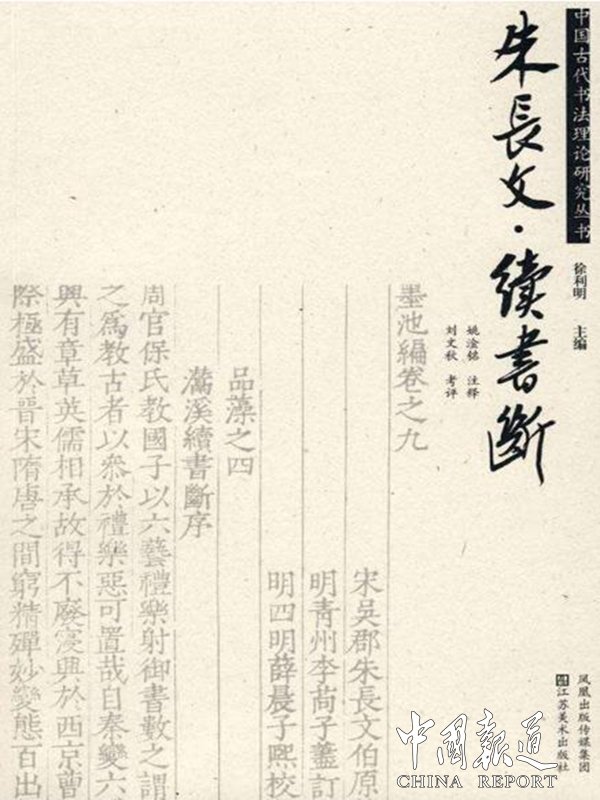 中国古代书法理论研究丛书
徐利明 主编
朱長文·續書斷
姚淦铭 注释
刘文秋 考评
墨池編卷之九
宋吳郡朱長文伯原
明青州李子藎訂
明四明薛晨子熙校
品藻之四
灊溪續書斷序
周官保氏教國子以六藝禮樂射御書數之謂
之爲教古者以叅於禮樂惡可置哉自秦變六
興有章草英儒相承故得不廢寖興於西京曾
際極盛於晉宋隋唐之間窮精殫妙變態百出
凤凰出版传媒集团
江苏美术出版社
中國報道
CHINA REPORT